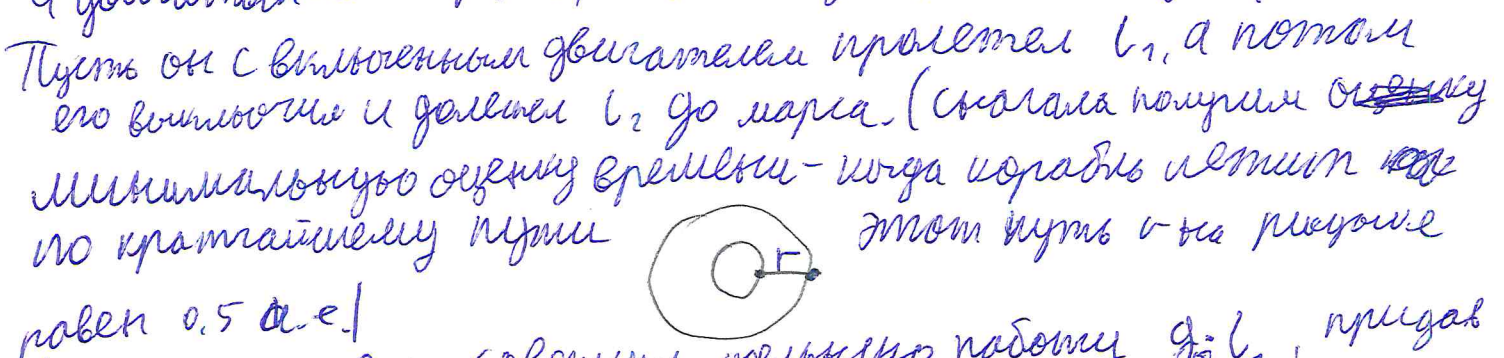 Пусть он с включенным двигателем пролетел l₁, а потом
его выключил и долетел l₂ до марса. (сначала получим
минимальную оценку времени - когда корабль летит
по кратчайшему пути r этот путь r - на рисунке
равен 0,5 а.е.)
работы придав